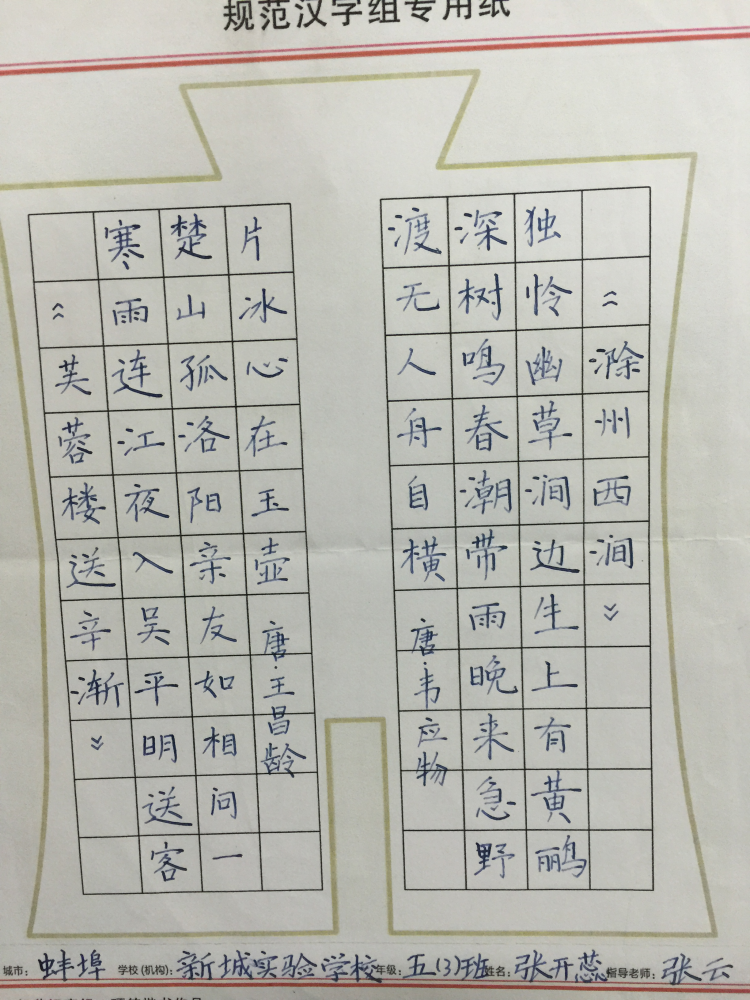 规范汉字组专用纸
《滁州西涧》
独怜幽草涧边生上有黄鹂
深树鸣春潮带雨晚来急野
渡无人舟自横 唐·韦应物
《芙蓉楼送辛渐》
寒雨连江夜入吴平明送客
楚山孤洛阳亲友如相问一
片冰心在玉壶 唐·王昌龄
城市: 蚌埠 学校(机构): 新城实验学校 年级: 五(3)班 姓名: 张开蕊 指导老师: 张云